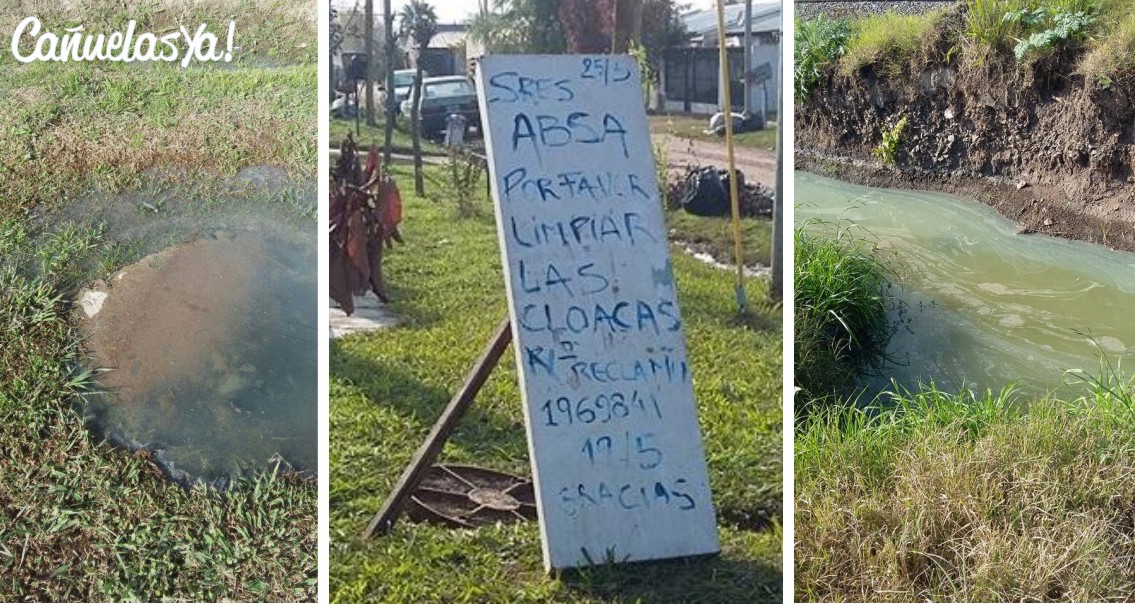 CañuelasYa!
25/5
SRES
ABSA
POR FAVOR
LIMPIAR
LAS
CLOACAS
Nº RECLAMO
1969841
17/5
GRACIAS